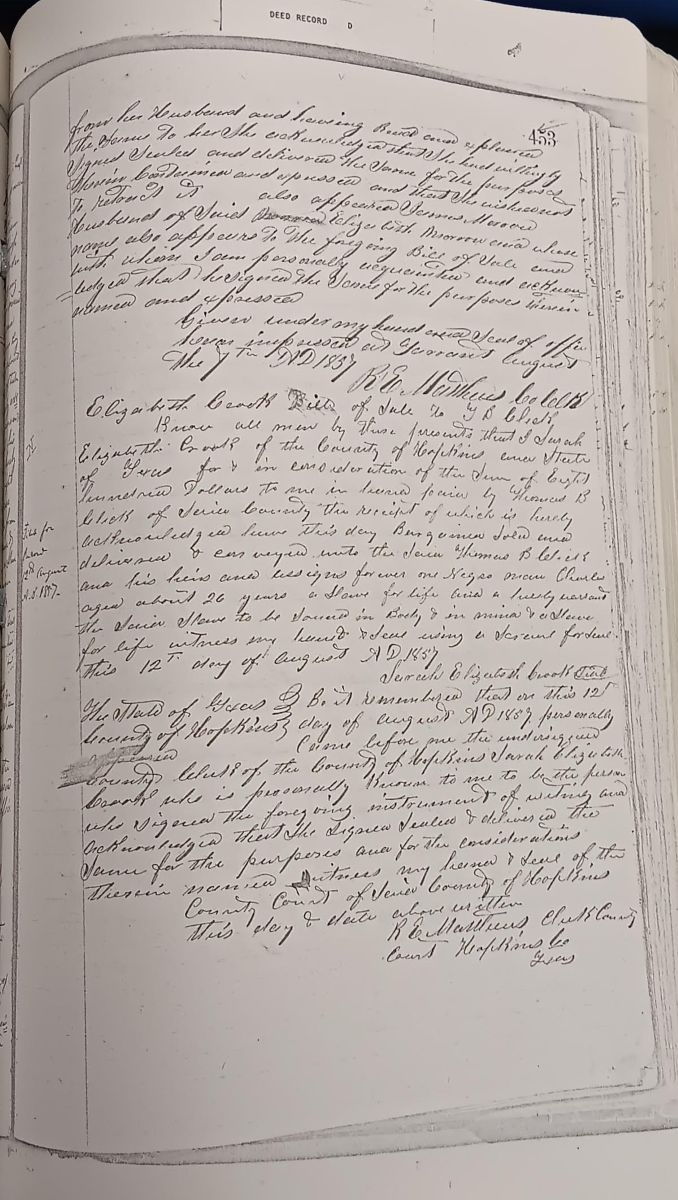 DEED RECORD D
453
from her Husband and having Read and explained
the Same To her She acknowledged that She had willingly
Signed Sealed and delivered the Same for the purposes
therein Contained and expressed and that She wished not
To retract it also appeared James Morrow
Husband of Said Elizabeth Morrow and whose
name also appears To the foregoing Bill of Sale and
with whom I am personally acquainted and acknow
ledged that he Signed the Same for the purposes therein
named and expressed
Given under my hand and Seal of office
at Tarrant August
the 7th AD 1857
R E Matthews Co Clk
Elizabeth Crook Bill of Sale To T B Click
Know all men by these presents that I Sarah
Elizabeth Crook of the County of Hopkins and State
of Texas for & in consideration of the Sum of Eight
hundred Dollars to me in hand paid by Thomas B
Click of Said County the receipt of which is hereby
acknowledged have this day Bargained Sold and
delivered & conveyed unto the Said Thomas B Click &
and his heirs and assigns forever one Negro man Charles
aged about 26 years a Slave for life and I hereby warrant
the Said Slave to be Sound in Body & in mind & a Slave
for life witness my hand & Seal using a Scrawl for Seal
this 12th day of August AD 1857
Sarah Elizabeth Crook Seal
Filed for
Record
August
A.D. 1857
The State of Texas } Be it remembered that on this 12th
County of Hopkins } day of August AD 1857 personally
Came before me the undersigned
County Clerk of the County of Hopkins Sarah Elizabeth
Crook who is personally Known to me to be the person
who Signed the foregoing instrument of writing and
acknowledged that She Signed Sealed & delivered the
Same for the purposes and for the considerations
therein named witness my hand & Seal of the
County Court of Said County of Hopkins
this day & date above written
R E Matthews Clerk County
Court Hopkins Co
Texas